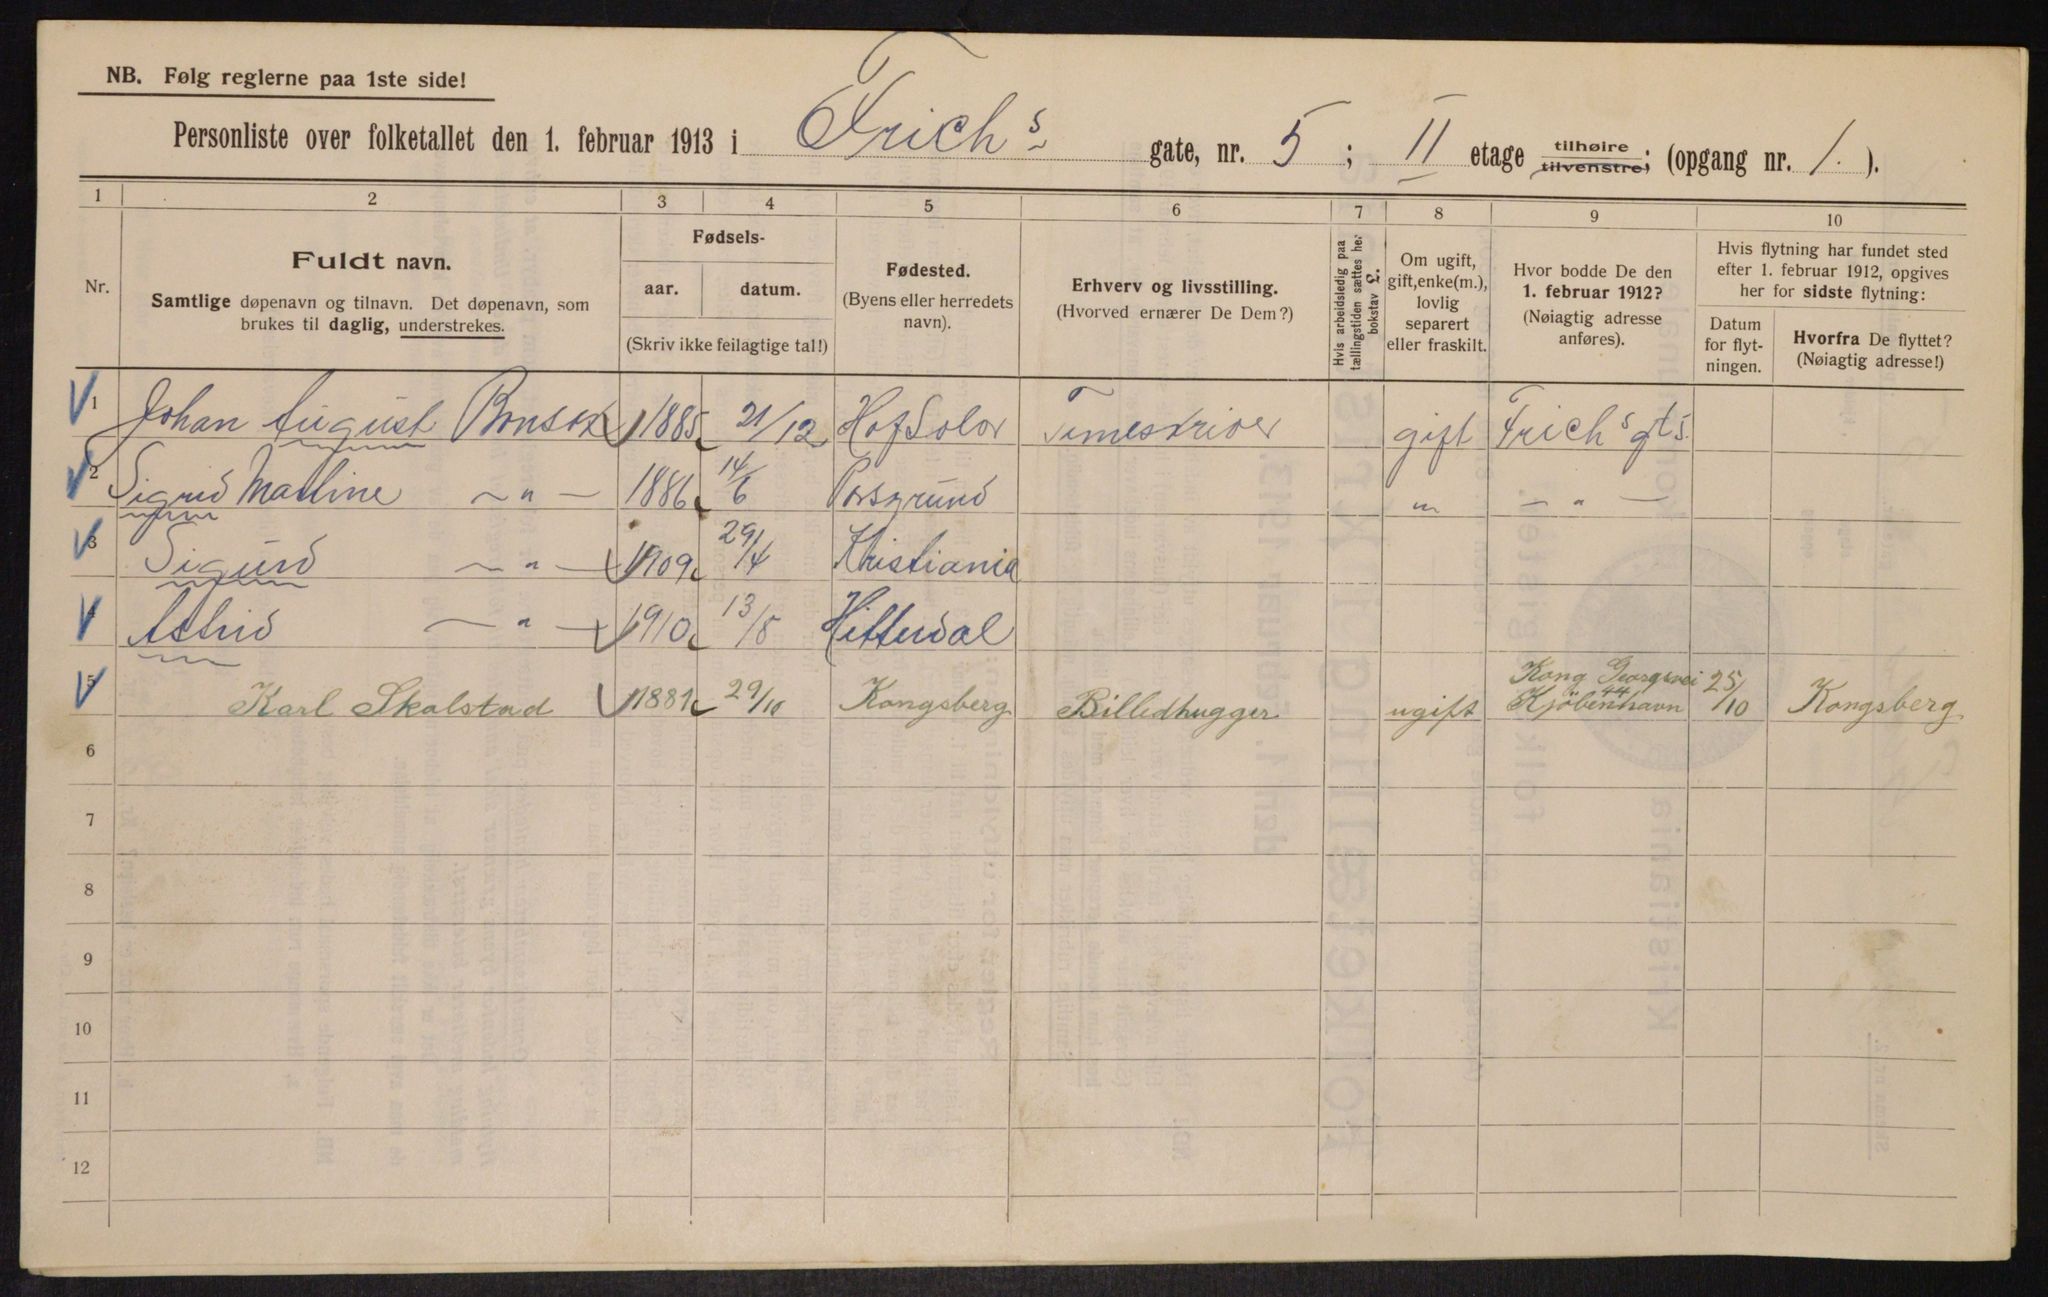 NB. Følg reglerne paa 1ste side!
Personliste over folketallet den 1. februar 1913 i Frich's gate, nr. 5; II etage tilhøire tilvenstre; (opgang nr. 1.).
1 2 3 4 5 6 7 8 9 10
Nr.
Fuldt navn.
Samtlige døpenavn og tilnavn. Det døpenavn, som
brukes til daglig, understrekes.
Fødsels-
aar.
datum.
(Skriv ikke feilagtige tal!)
Fødested.
(Byens eller herredets
navn).
Erhverv og livsstilling.
(Hvorved ernærer De Dem?)
Hvis arbeidsledig paa
tællingstiden sættes her
bokstav L.
Om ugift,
gift, enke(m.),
lovlig
separert
eller fraskilt.
Hvor bodde De den
1. februar 1912?
(Nøiagtig adresse
anføres).
Hvis flytning har fundet sted
efter 1. februar 1912, opgives
her for sidste flytning:
Datum
for flyt-
ningen.
Hvorfra De flyttet?
(Nøiagtig adresse!)
1 Johan August 1885 21/12 Hof Solør Timeskriver gift Frich's gt 5.
2 Sigrid Martine — " — 1886 14/6 Porsgrund " — " —
3 Sigurd — " — 1909 29/4 Kristiania
4 Astrid — " — 1910 13/8 Hitterdal
5 Karl Skalstad 1881 29/10 Kongsberg Billedhugger ugift Kong Georgsvei 44 Kjöbenhavn 25/10 Kongsberg
6
7
8
9
10
11
12